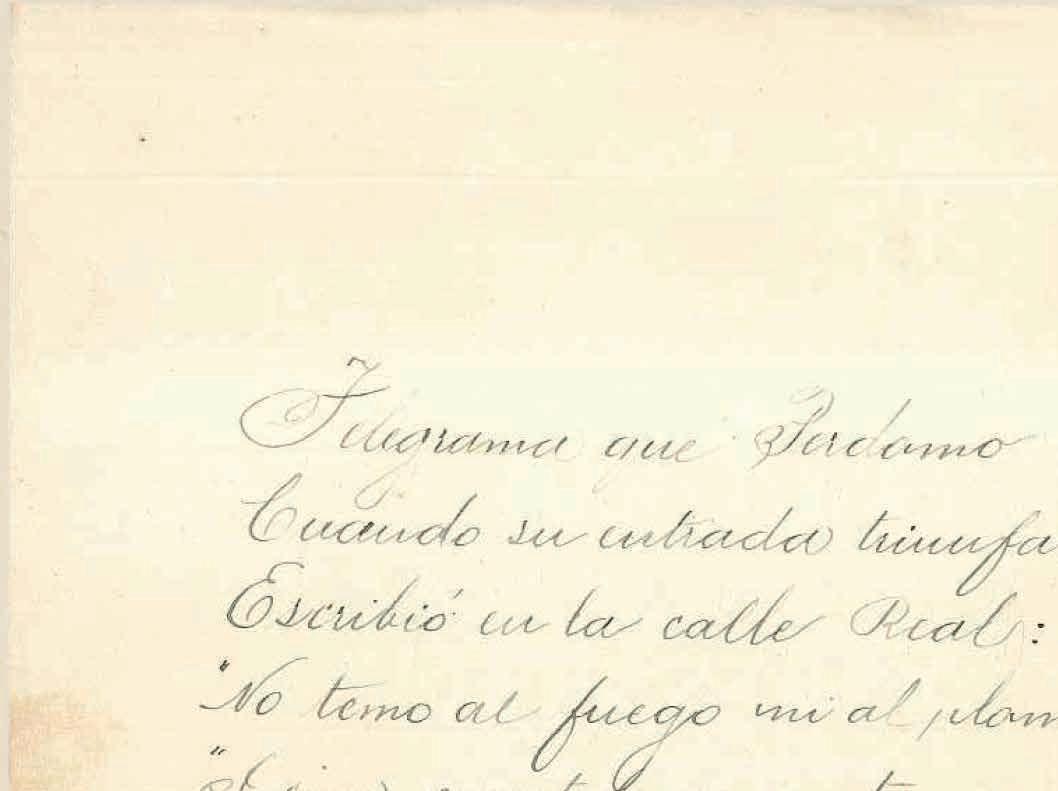 Telegrama que Perdomo
Cuando su entrada triunfa
Escribió en la calle Real:
"No temo al fuego ni al plom